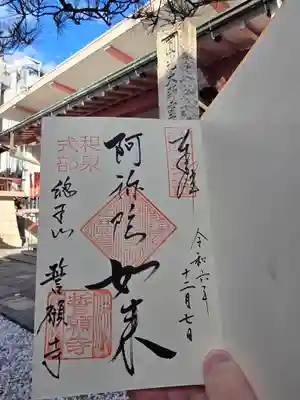 奉拝
令和六年
十二月七日
阿弥陀如来
和泉
式部
総本山
誓願寺
誓願寺